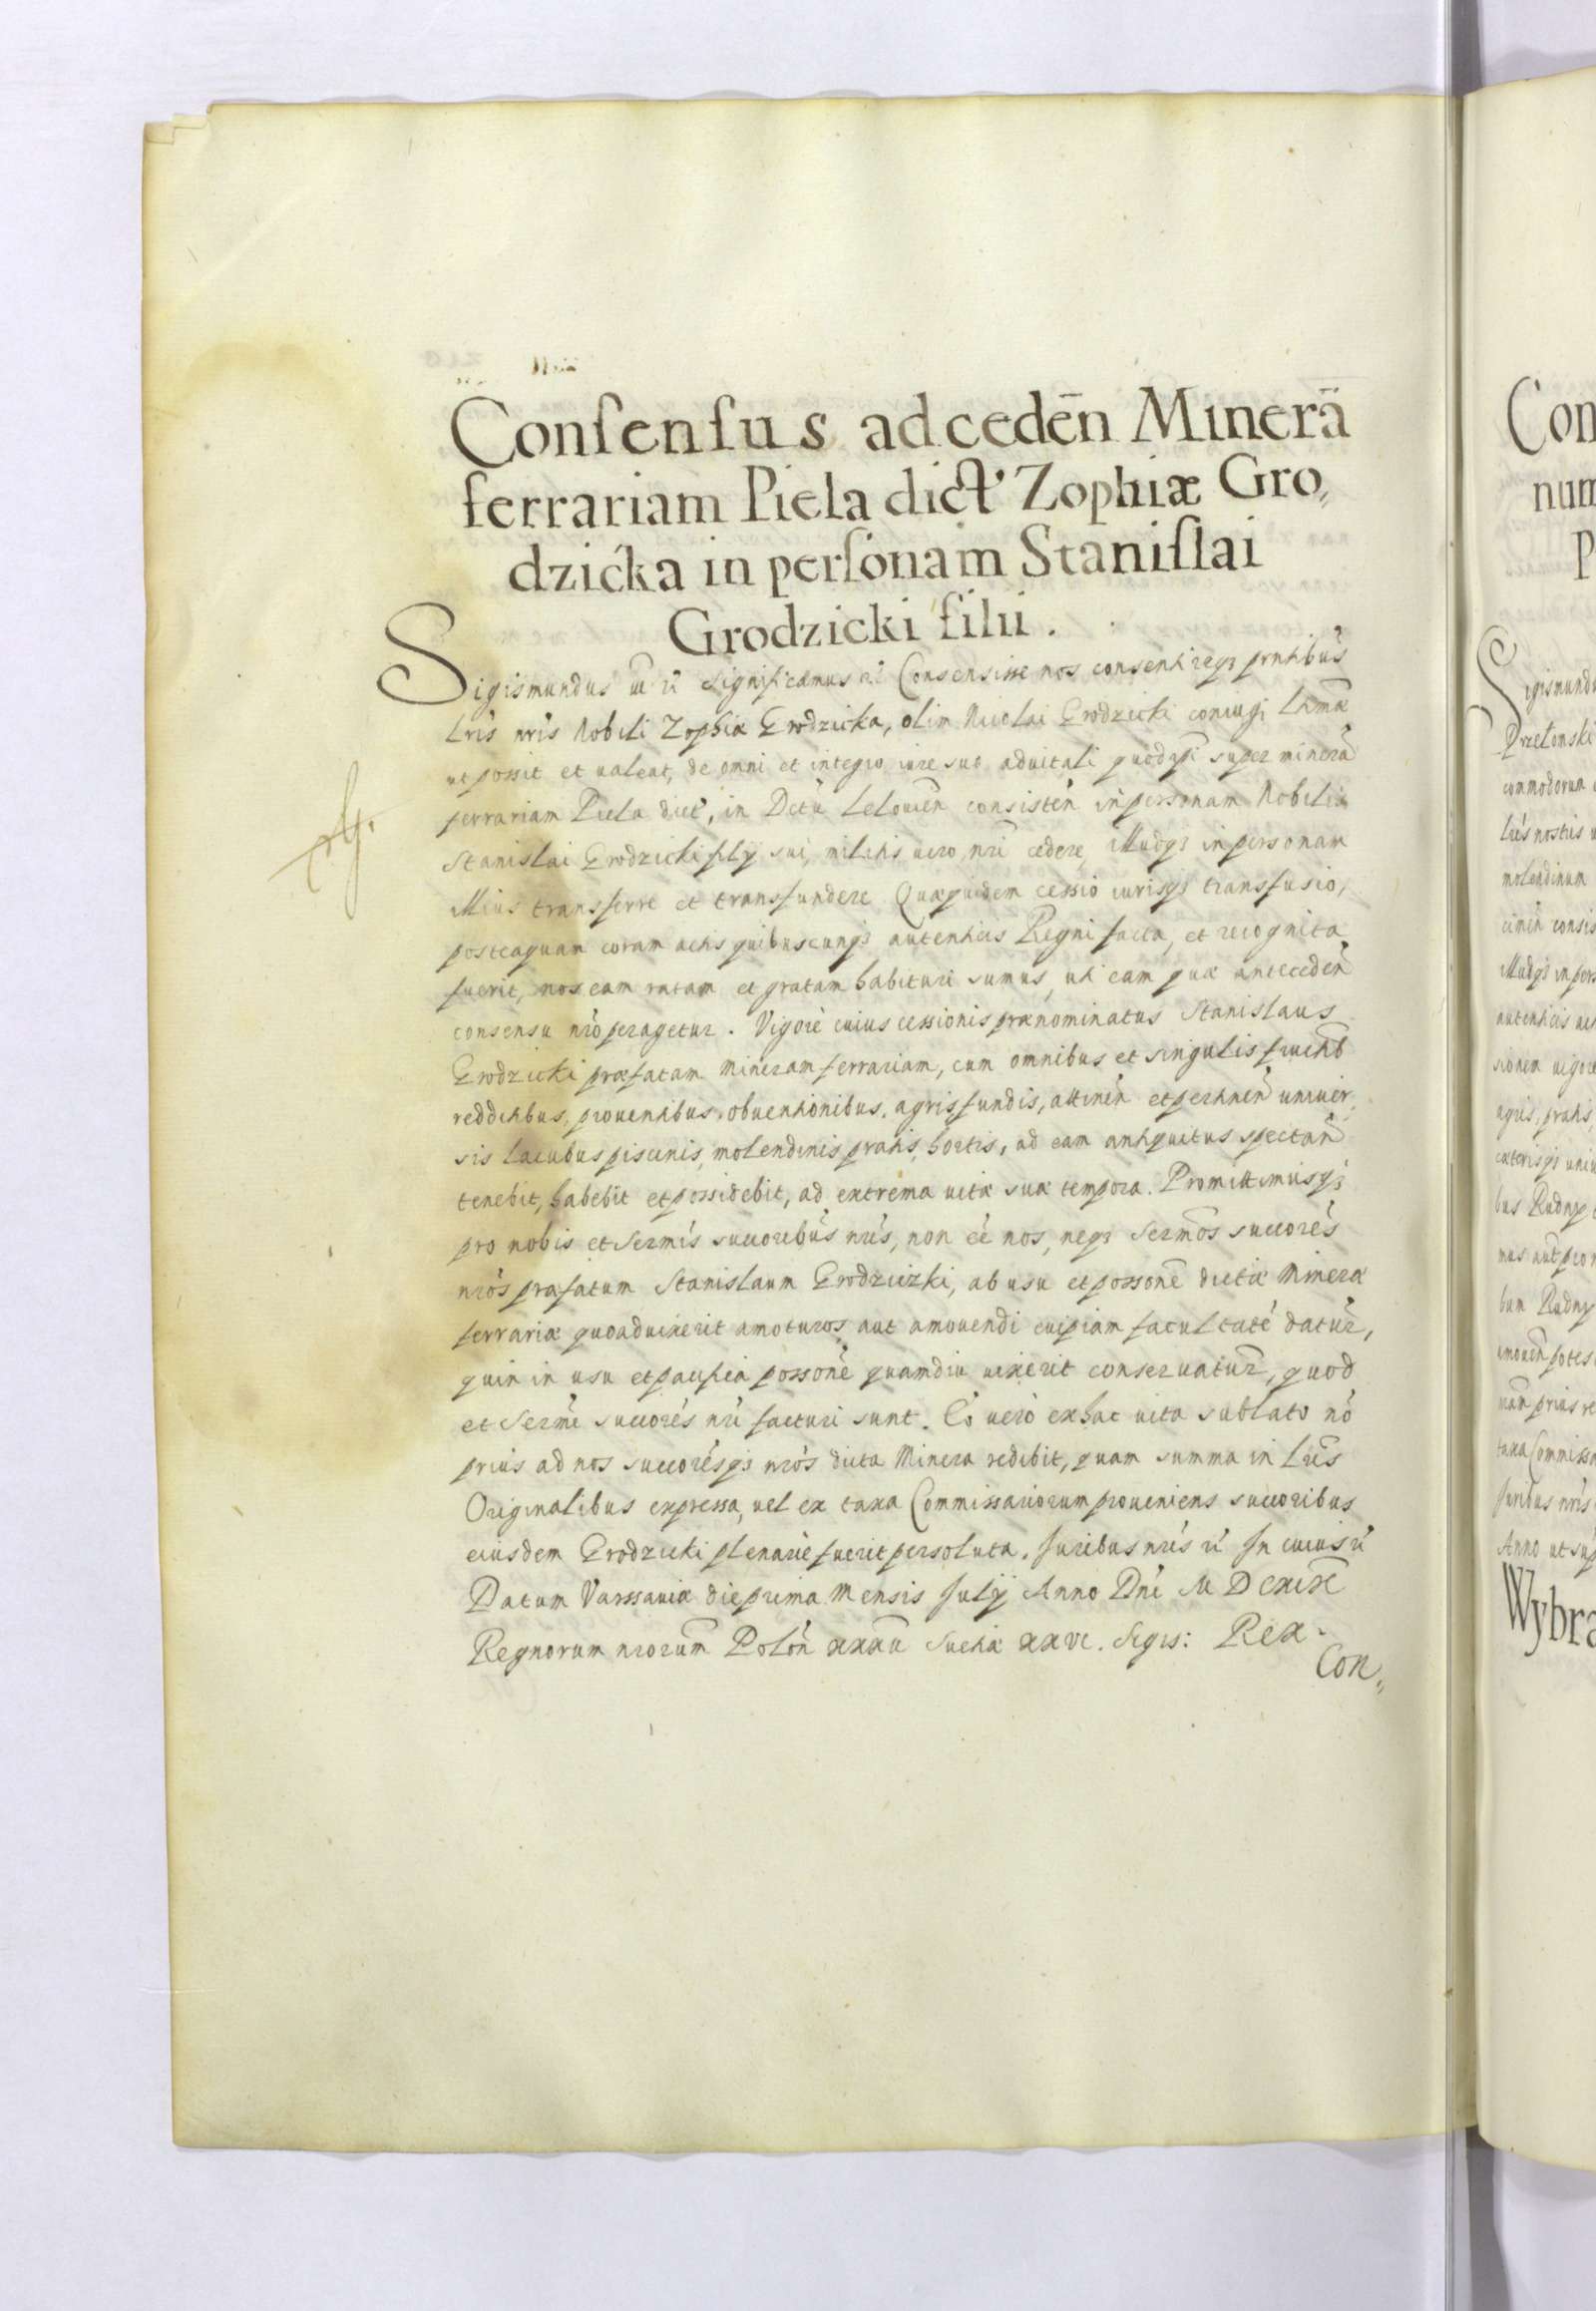 Consensus ad cedēn Minerā
ferrariam Piela dict' Zophiæ Gro„
dzicka in personam Stanislai
Grodzicki filii.
Sigismundus Significamus Consensisse nos consentireqз prntibus
Lris nris Nobili Zophiæ Grodzicka, olim Nicolai Grodzicki coniugi
ut possit et ualeat, de omni et integro iure suo aduitali quod super minerā
ferrariam Piela dict', in Dctu Leloulen consistēn in personam Nobilis
Stanislai Grodzicki filij sui, militis uero nri cedere, illudqз in personam
illius transferre et transfundere Quæquidem cessio iurisqз transfusio,
posteaquam coram actis quibuscunqз autenticis Regni facta, et recognita
fuerit, nos eam ratam et gratam habituri sumus, uti eam quæ antecedēn
consensu nro peragetur. Vigore cuius cessionis prænominatus Stanislaus
Grodzicki præfatam Mineram ferrariam, cum omnibus et singulis fructib
redditibus, prouentibus, obuentionibus, agris fundis, attinēn et pertinēn uniuer„
sis lacubus piscinis, molendinis pratis, hortis, ad eam antiquitus spectān
tenebit, habebit et possidebit, ad extrema uitæ suæ tempora. Promittimusqз
pro nobis et Sermis succoribus nris, non eé nos, neqз Sermos succores
nros præfatum Stanislaum Grodzicki, ab usu et possone dictæ Mineræ
ferrariæ quoad uixerit amoturos, aut amouendi cuipiam facultaté datur,
quin in usu et pacifica possone quamdiu uixerit conseruatur, quod
et Sermi succores nri facturi sunt. Eo uero ex hac uita sublato nō
prius ad nos succoresqз nros dicta Minera redibit, quam summa in Lris
Originalibus expressa, uel ex taxa Commissariorum proueniens succoribus
eiusdem Grodzicki plenarie fuerit persoluta. Iuribus nris In cuius
Datum Varssauiæ die prima Mensis Iulij Anno Dni M DCXIX
Regnorum nrorum Polōn xxxii Sueciæ xxvi. Sigis: Rex.
Con„
Con
num
P
Sigismundu
commodorum
molendinum
illudqз in pers
autenticis
agris, pratis,
Commissa
Anno ut sup
Wybra